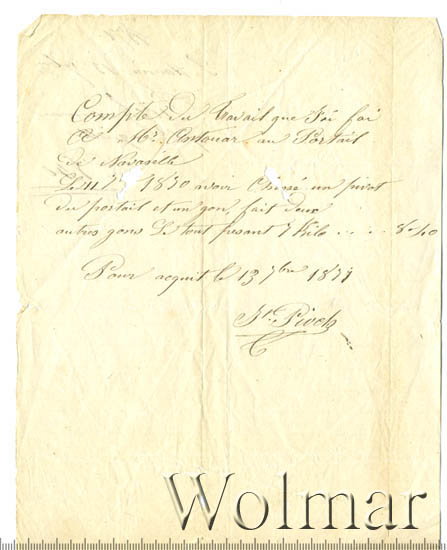 Compte du travail que J'ai fai
A Mr. Antouar au Portail
de Navaselle
Le 11 7bre 1830 avoir Chossé un pivot
du portail et un gon fait deux
autres gons Le tout pesant 7 Kilo . . . . 8-40
Pour acquit le 13 7bre 1831
Pivot
Wolmar